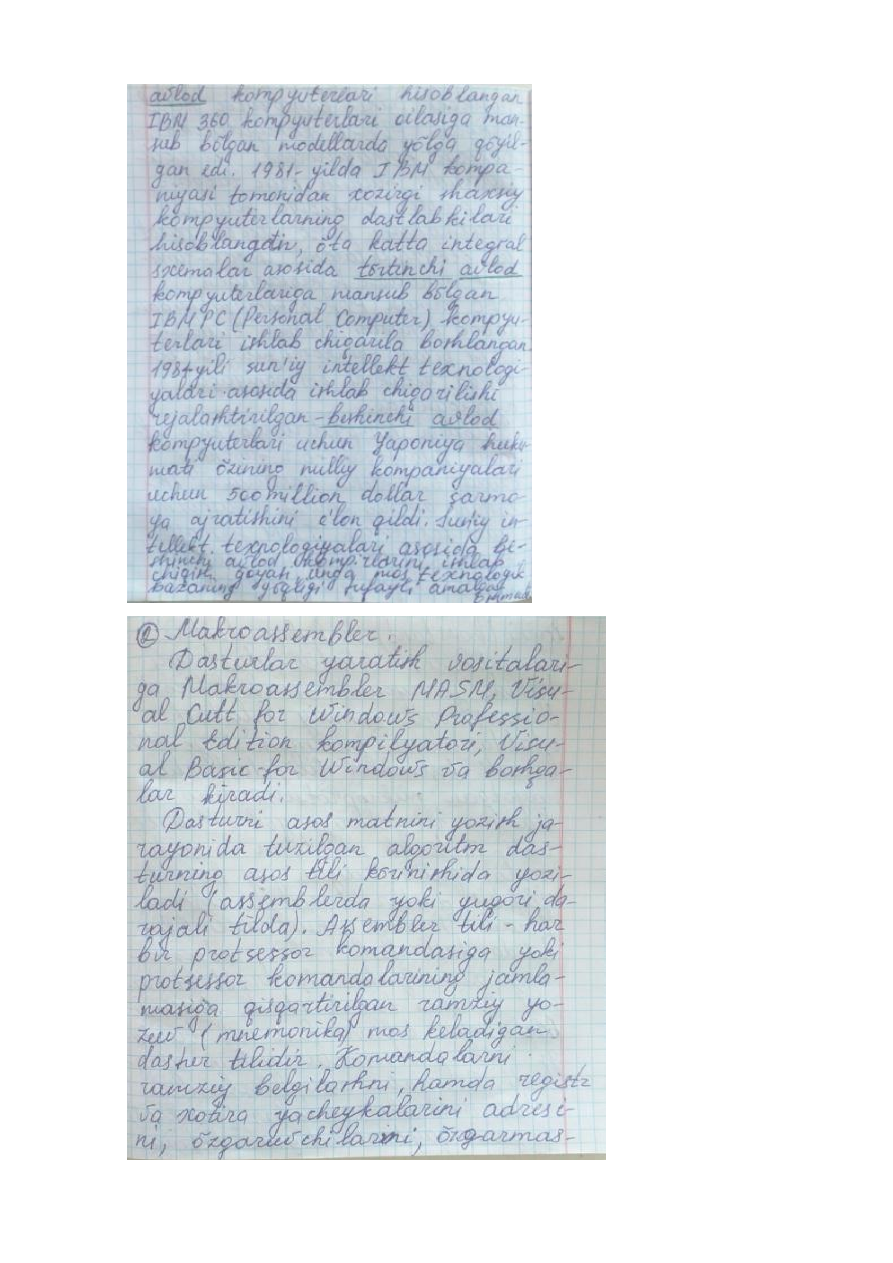 avlod kompyuterlari hisoblangan
IBM 360 kompyuterlari oilasiga man-
sub bõlgan modellarda yõlga qõyil-
gan edi. 1981-yilda IBM kompa-
niyasi tomonidan xozirgi shaxsiy
kompyuterlarning dastlabkilari
hisoblangan, õta katta integral
sxemalar asosida tõrtinchi avlod
kompyuterlariga mansub bõlgan
IBM PC (Personal Computer) kompyu-
terlari ishlab chiqarila boshlangan
1984 yili sun'iy intellekt texnologi-
yalari asosida ishlab chiqarilishi
rejalashtirilgan - beshinchi avlod
kompyuterlari uchun Yaponiya huku-
mati õzining milliy kompaniyalari
uchun 500 million dollar sarmo-
ya ajratishini e'lon qildi. Sun'iy in-
tellekt texnologiyalari asosida be-
shinchi avlod ishlab
chiqish goyasi unga mos texnologik
bazaning yõqligi tufayli amalga
oshmadi
② Makroassembler.
Dasturlar yaratish vositalari-
ga Makroassembler MASM, Visu-
al Cutt for Windows Professio-
nal Edition kompilyatori, Visu-
al Basic for Windows va boshqa-
lar kiradi.
Dasturni asos matnini yozish ja-
rayonida tuzilgan algoritm das-
turning asos tili kõrinishida yozi-
ladi (assemblerda yoki yuqori da-
rajali tilda). Assembler tili - har
bir protsessor komandasiga yoki
protsessor komandalarining jamla-
masiga qisqartirilgan ramziy yo-
zuv (mnemonika) mos keladigan
dastur tilidir. Komandalarni
ramziy belgilashni, hamda registr
va xotira yacheykalarini adresi-
ni, õzgaruvchilarini, õzgarmas-